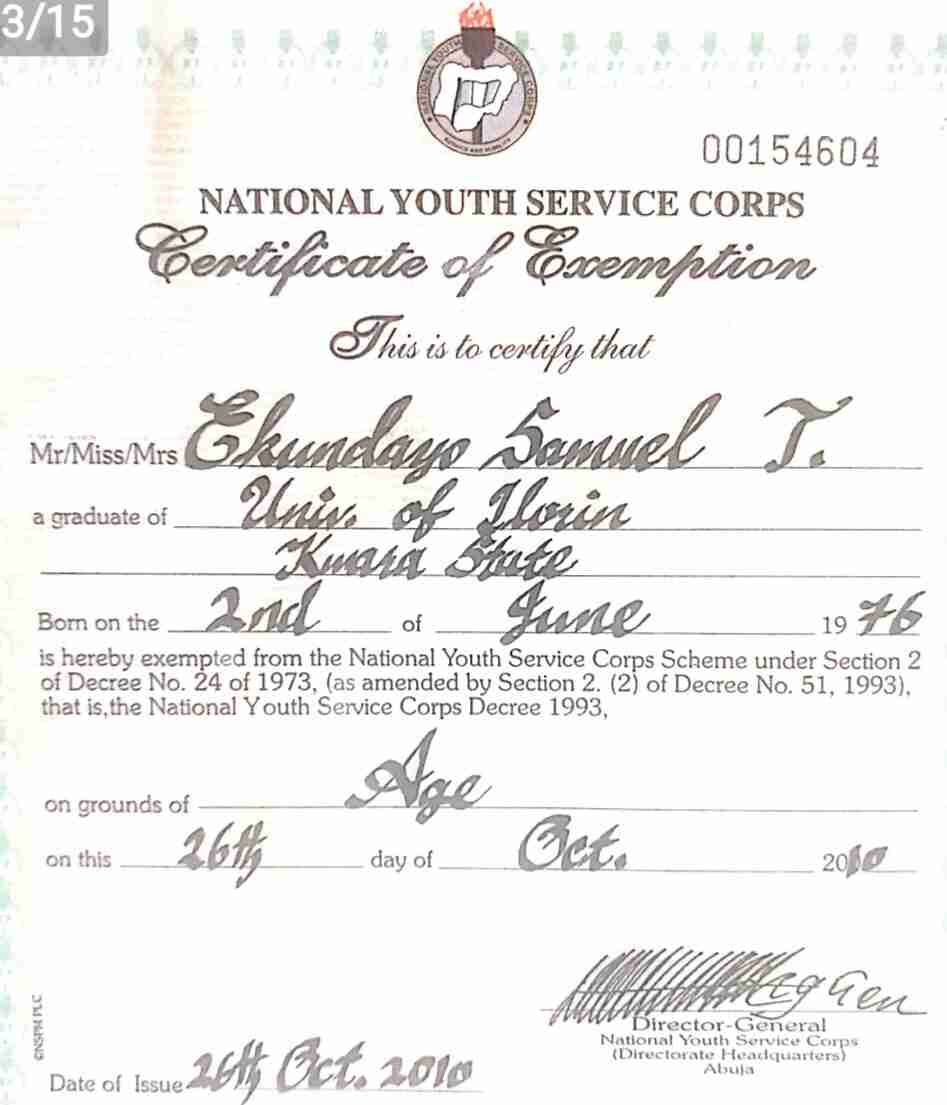 3/15
NATIONAL YOUTH SERVICE CORPS
SERVICE AND HUMILITY
00154604
NATIONAL YOUTH SERVICE CORPS
Certificate of Exemption
This is to certify that
Mr/Miss/Mrs Ekundayo Samuel T.
a graduate of Univ. of Ilorin
Kwara State
Born on the 2nd of June 1976
is hereby exempted from the National Youth Service Corps Scheme under Section 2
of Decree No. 24 of 1973, (as amended by Section 2. (2) of Decree No. 51, 1993),
that is,the National Youth Service Corps Decree 1993,
on grounds of Age
on this 26th day of Oct. 2010
Brig Gen
Director-General
National Youth Service Corps
(Directorate Headquarters)
Abuja
©NSPM PLC
Date of Issue 26th Oct. 2010